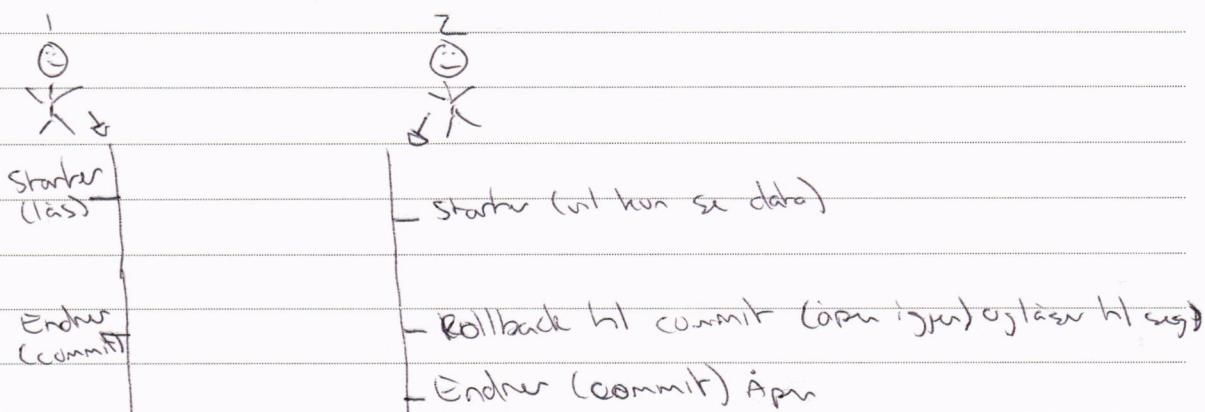 1
2
Starter
(lås)
Starter (vil kun se data)
Endrer
(commit)
Rollback til commit (åpen igjen) og låser til seg)
Endrer (commit) Åpen